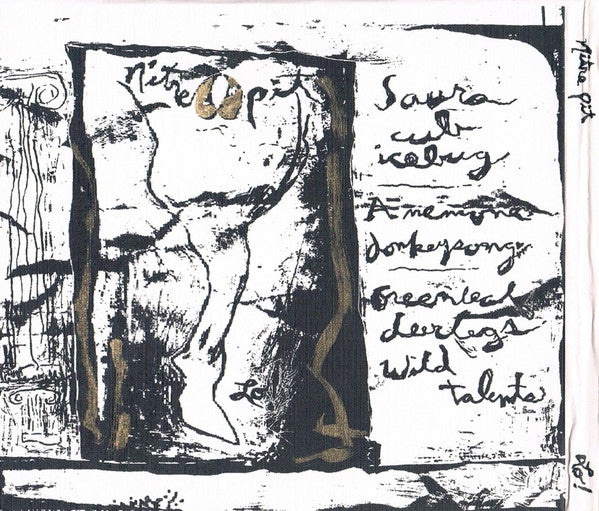 Nitre pit
Saura
cub
icebug
Anemona
donkeysong
Greenleaf
deerlegs
Wild
talents
Lo
Nitre pit